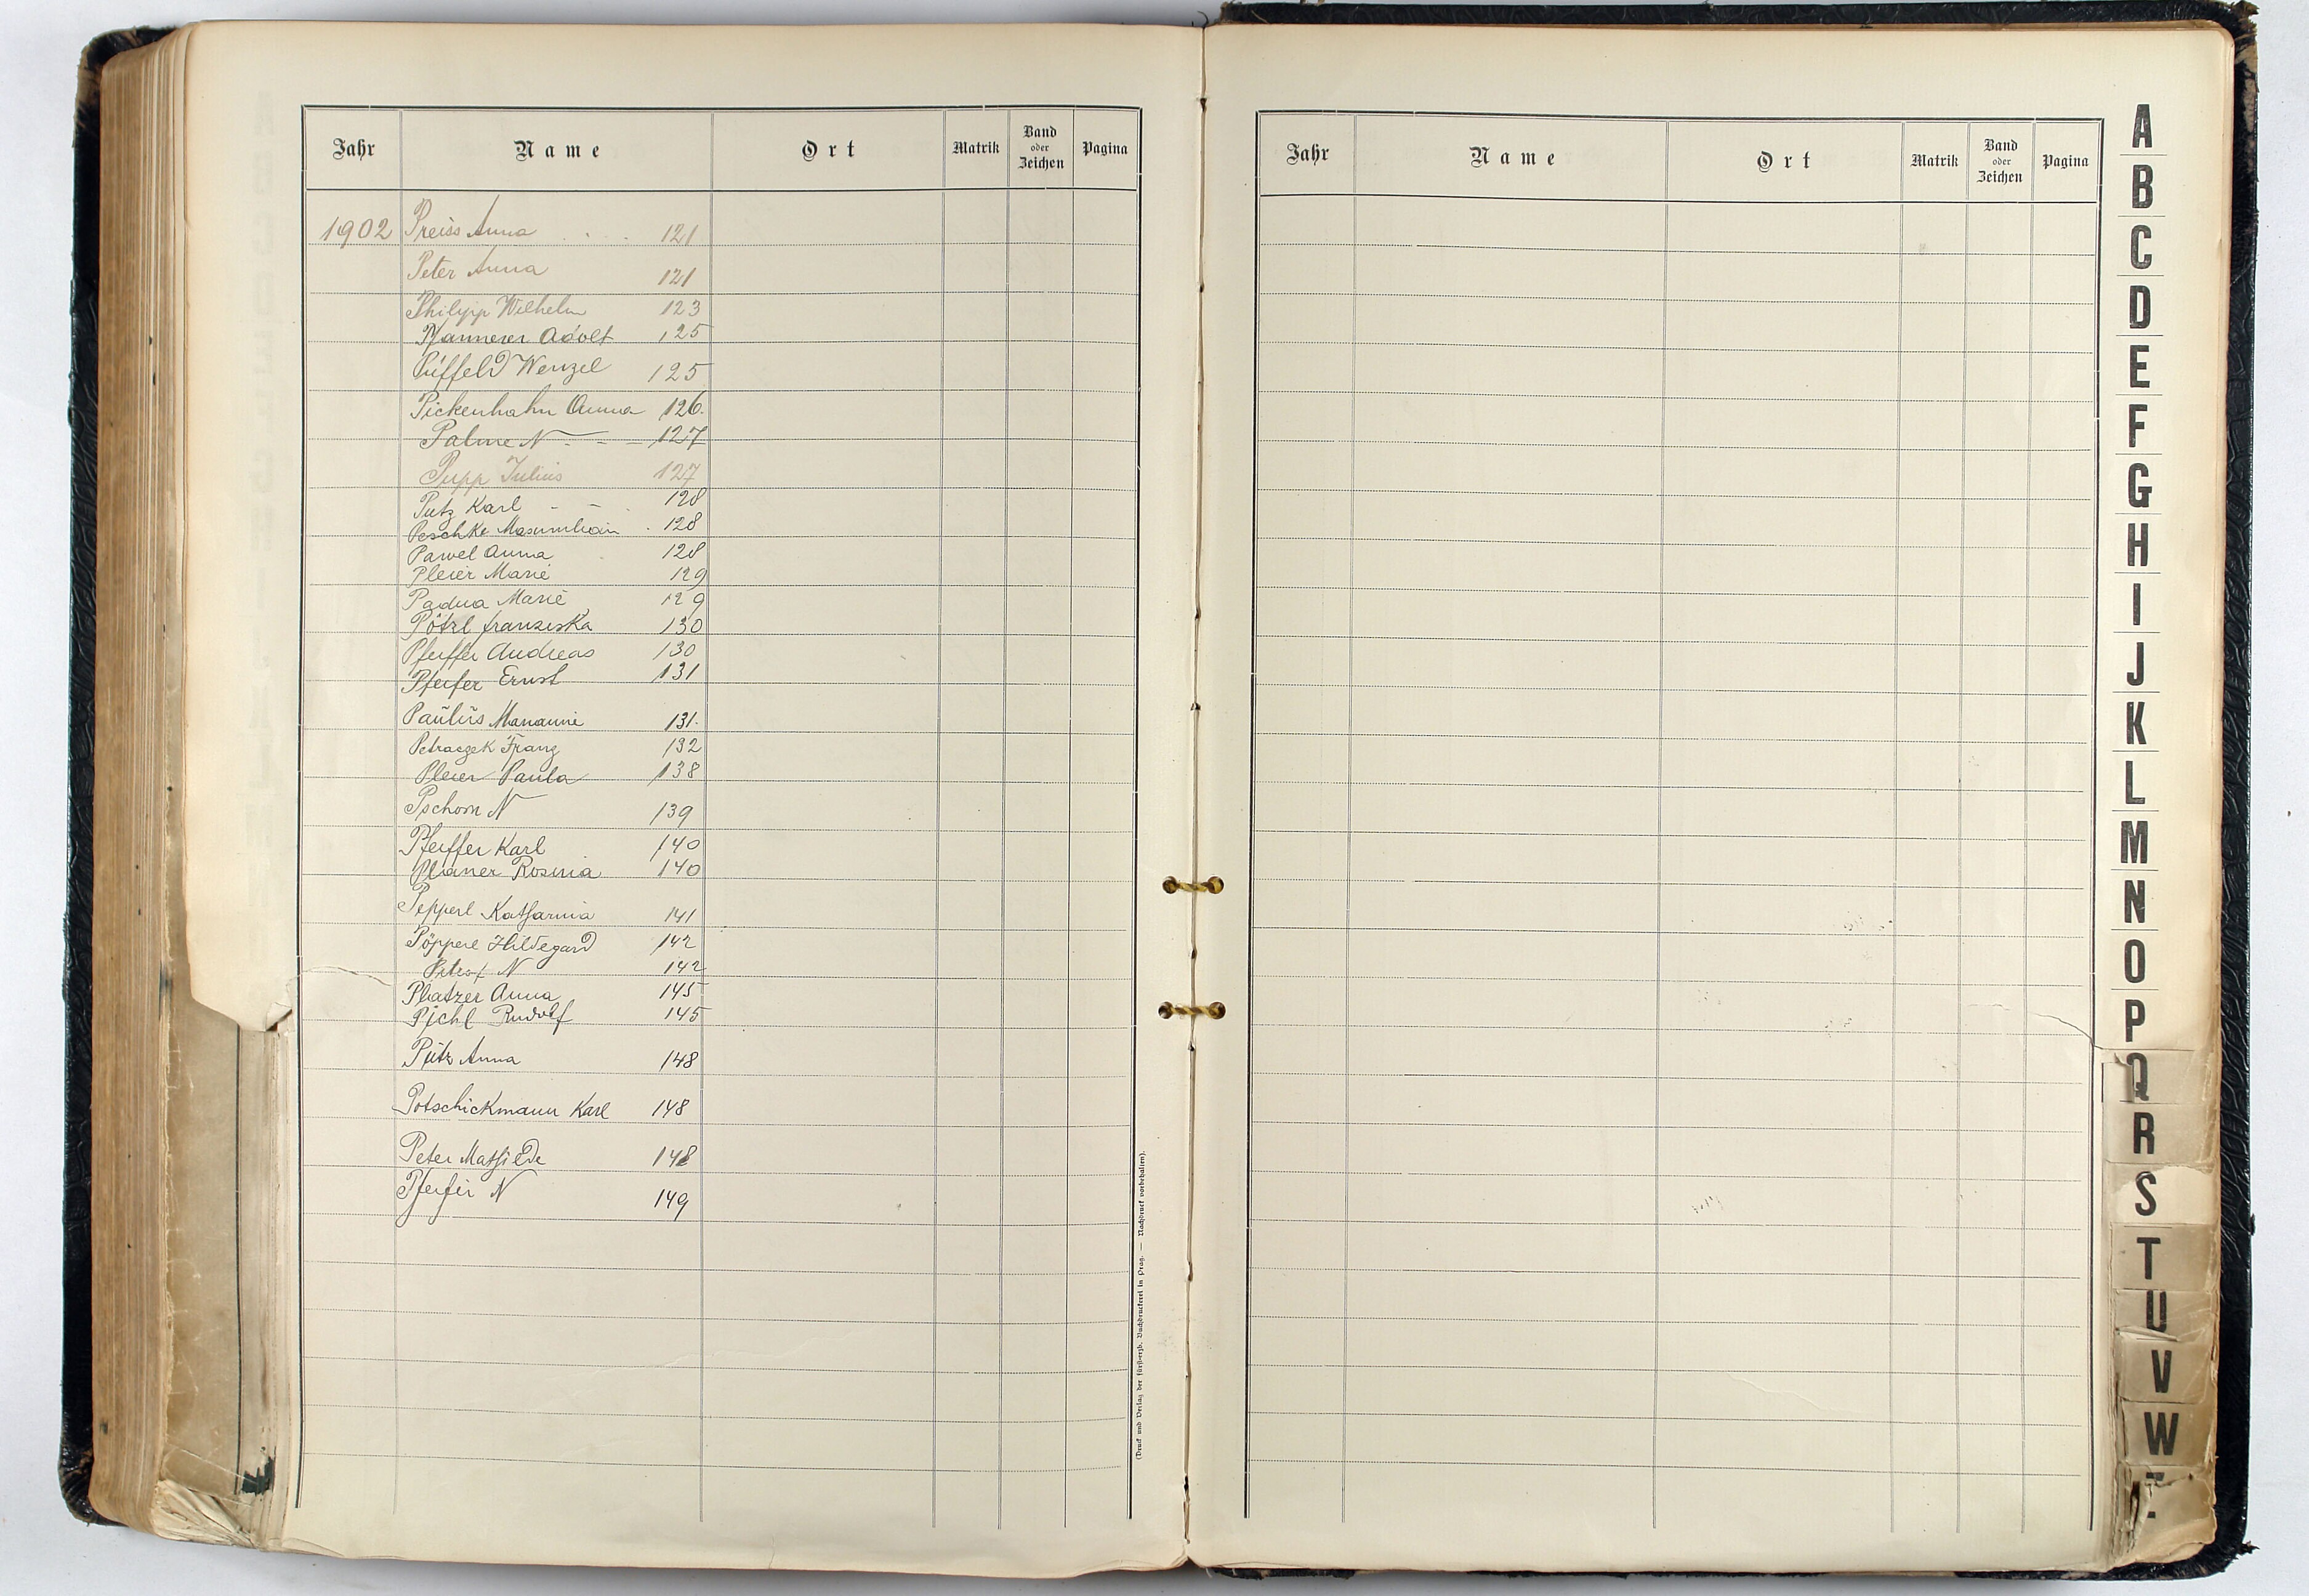 Jahr Name Ort Matrik Band oder Zeichen Pagina
1902 Preiss Anna . - . 121
Peter Anna 121
Philipp Wilhelm 123
Pfannerer Adolf 125
Püffeld Wenzel 125
Pickenhahn Anna 126.
Palme N - - 127
Pupp Julius 127
Putz Karl - - 128
Peschke Maxumilian . 128
Pawel Anna 128
Pleier Marie 129
Padua Marie 129
Pötzl Franziska 130
Pfeiffer Andreas 130
Pfeifer Ernst 131
Paulus Marianne 131.
Petraczek Franz 132
Pleier Paula 138
Pschorn N 139
Pfeiffer Karl 140
Planer Rosina 140
Pepperl Katharina 141
Pöpperl Hildegard 142
N 142
Platzer Anna 145
Pichl Rudolf 145
Pütz Anna 148
Potschickmann Karl 148
Peter Mathilde 148
Pfeifer N 149
(Druck und Verlag der fürst-erzb. Buchdruckerei in Prag. — Nachdruck vorbehalten).
Jahr Name Ort Matrik Band oder Zeichen Pagina
A
B
C
D
E
F
G
H
I
J
K
L
M
N
O
P
Q
R
S
T
U
V
W